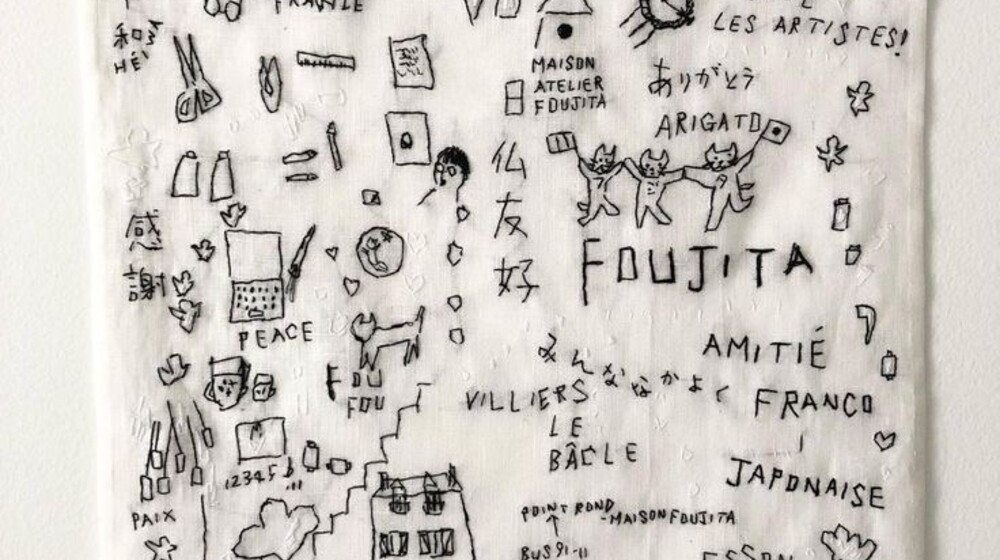 FRANCE
LES ARTISTES!
和
HÉ
MAISON
ATELIER
FOUJITA
ありがとう
ARIGATO
仏
友
好
感
謝
FOUJITA
PEACE
AMITIÉ
みんななかよく
FOU
FOU
VILLIERS
LE
BÂCLE
FRANCO
-
JAPONAISE
12345
PAIX
POINT ROND
-MAISON FOUJITA
BUS 91-11